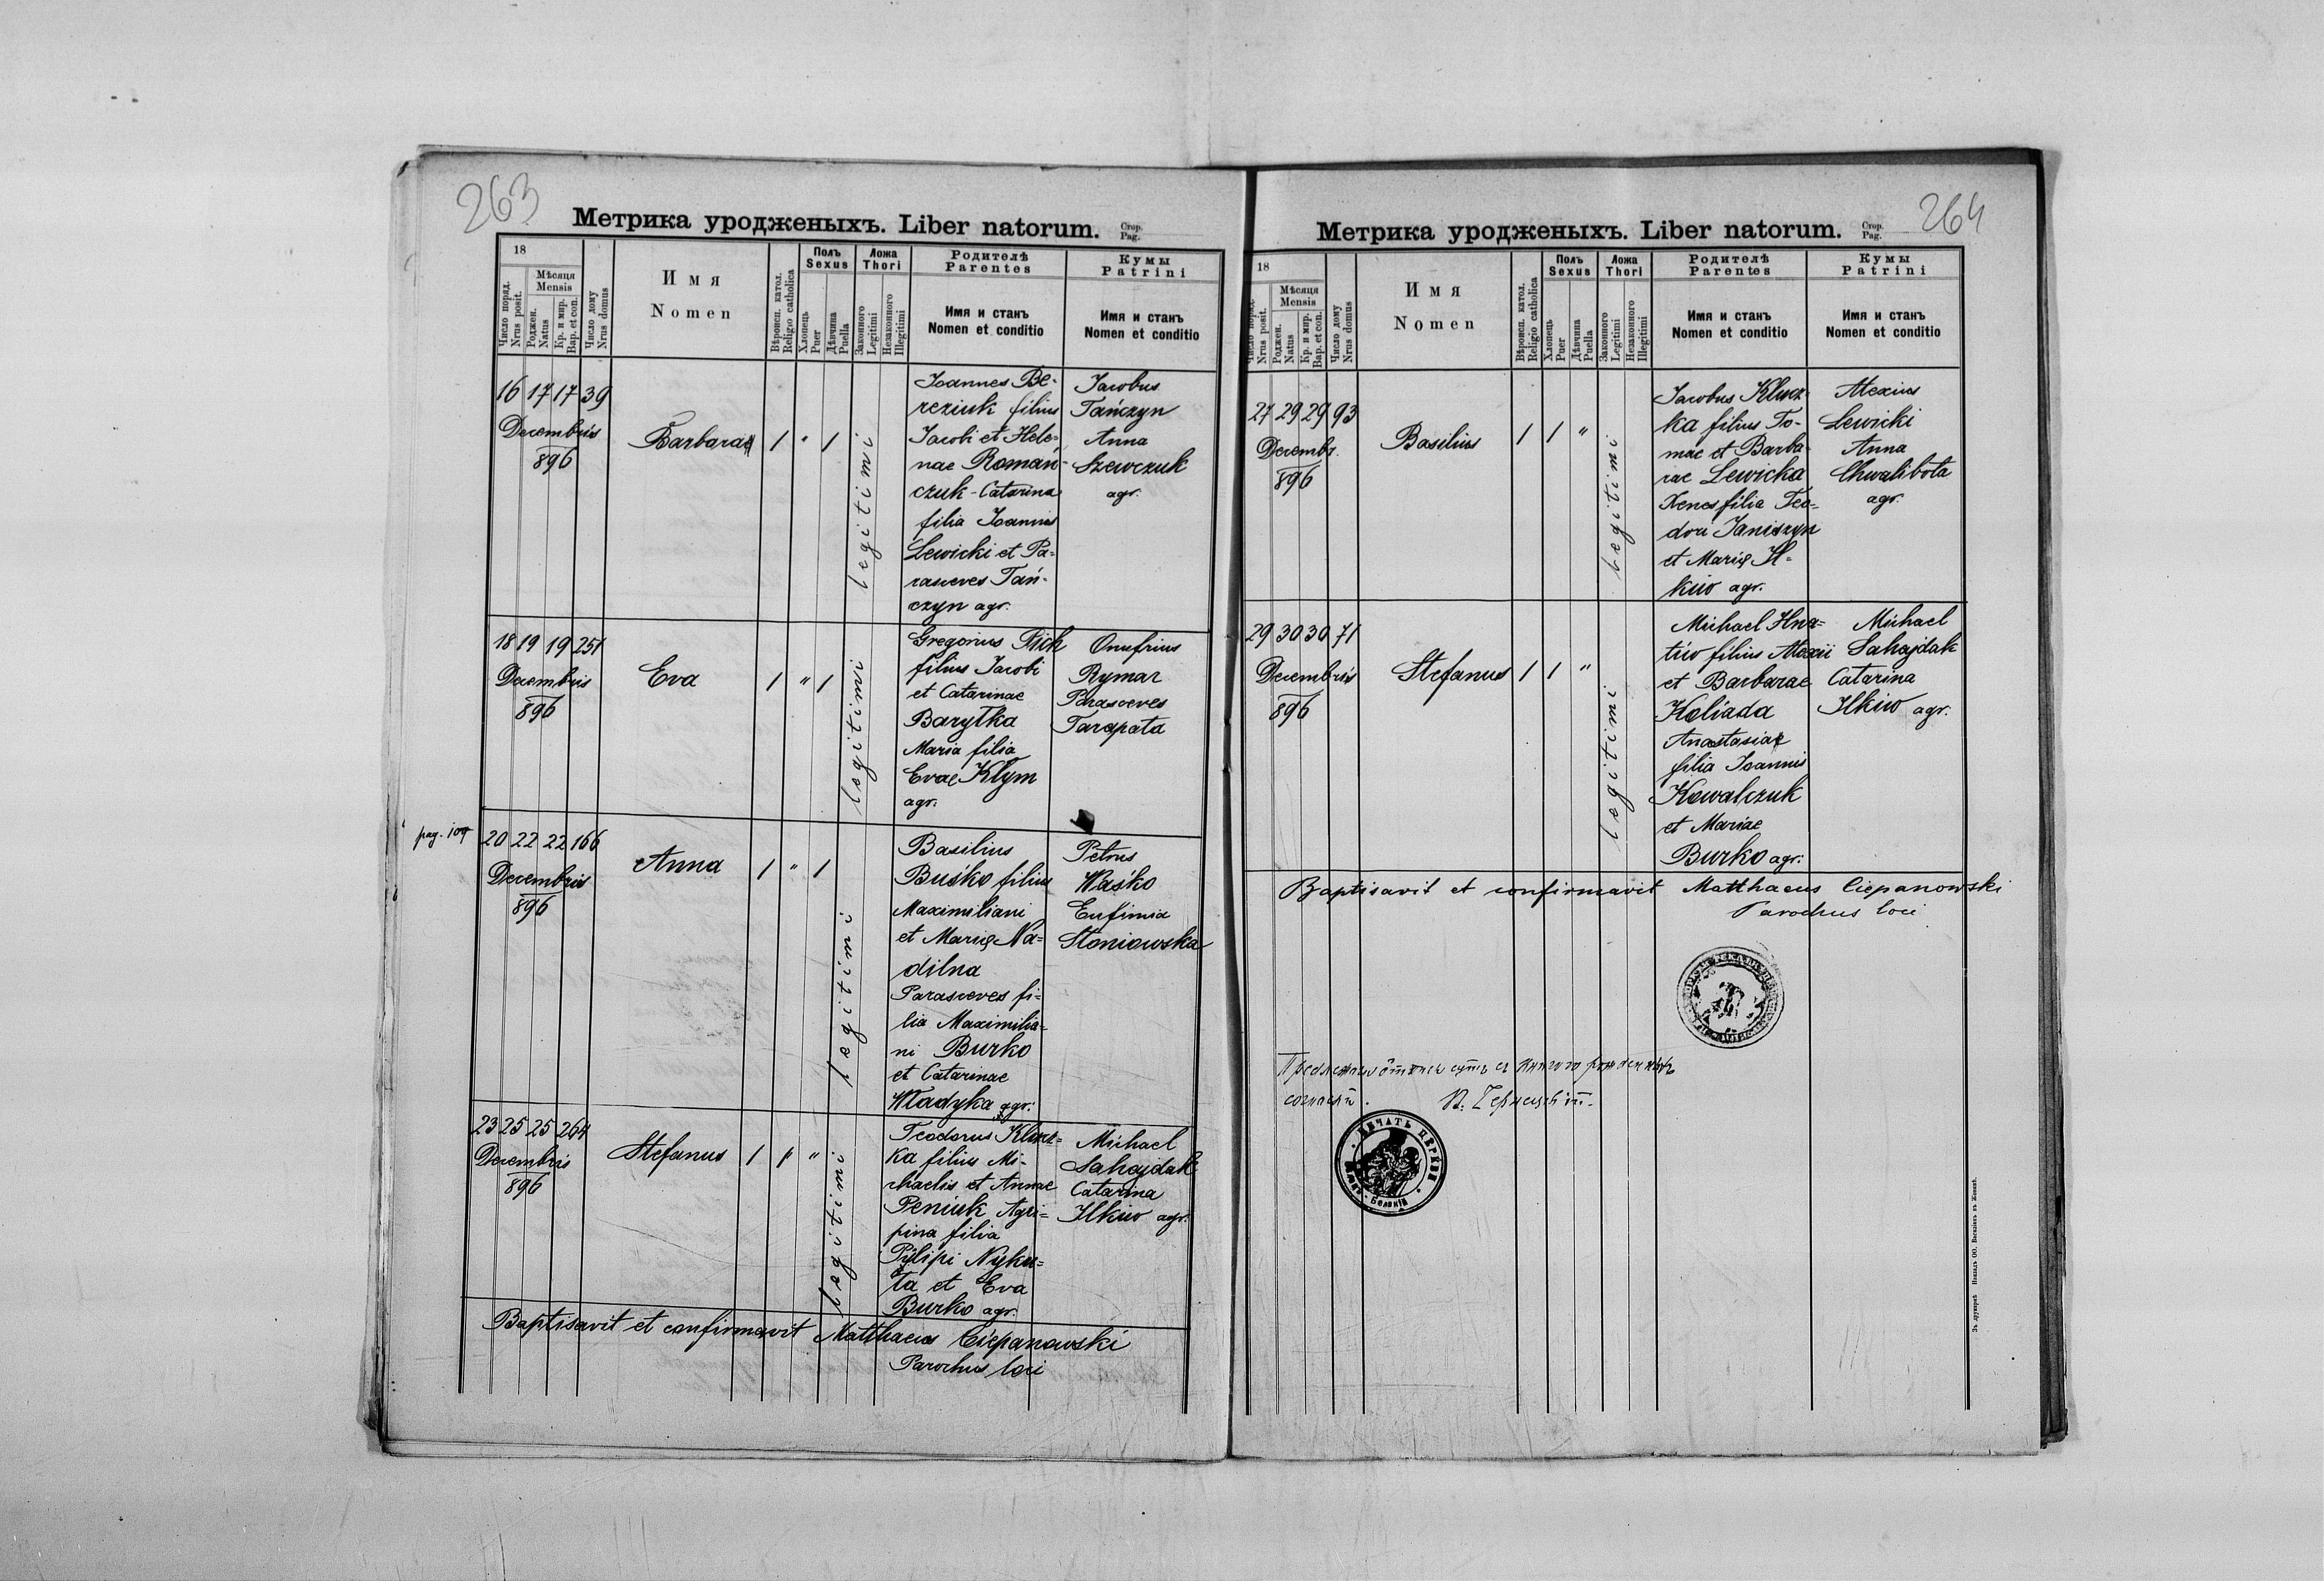 263
Метрика уродженыхъ. Liber natorum. Стор. Pag.
18
Число поряд. Nrus posit.
Мѣсяця Mensis
Роджен. Natus
Кр. и мир. Bap. et con.
Число дому Nrus domus
Имя
Nomen
Вѣроисп. катол. Religio catholica
Полъ Sexus
Хлопець Puer
Дѣвчина Puella
Ложа Thori
Законного Legitimi
Незаконного Illegitimi
Родителѣ Parentes
Имя и станъ
Nomen et conditio
Кумы Patrini
Имя и станъ
Nomen et conditio
16 17 17 39
Decembris
896
Barbara
1 " 1
legitimi
Joannes Be-
reziuk filius
Jacobi et Hele=
nae Romań-
czuk - Catarina
filia Joannis
Lewicki et Pa=
rasceves Tań-
czyn agr.
Jacobus
Tańczyn
Anna
Szewczuk
agr.
18 19 19 251
Decembris
896
Eva
1 " 1
legitimi
Gregorius
filius Jacobi
et Catarinae
Baryłka
Maria filia
Evae Kłym
agr.
Onufrius
Rymar
Parasceves
Tarapata
pag. 109
20 22 22 166
Decembris
896
Anna
1 " 1
legitimi
Basilius
Buśko filius
Maximiliani
et Marię Na=
dilna
Parasceves fi=
lia Maximilia=
ni Burko
et Catarinae
Władyka agr.
Petrus
Waśko
Eufimia
Słoniowska
23 25 25 264
Decembris
896
Stefanus
1 1 "
legitimi
Teodorus Klucz=
ka filius Mi-
chaelis et Annae
Peniuk Agri=
pina filia
Pylipi Nyku=
ła et Eva
Burko agr.
Michael
Sahajdak
Catarina
Ilkiw agr.
Baptisavit et confirmavit Matthaeus Ciepanowski
Parochus loci
264
Метрика уродженыхъ. Liber natorum. Стор. Pag.
18
Число поряд. Nrus posit.
Мѣсяця Mensis
Роджен. Natus
Кр. и мир. Bap. et con.
Число дому Nrus domus
Имя
Nomen
Вѣроисп. катол. Religio catholica
Полъ Sexus
Хлопець Puer
Дѣвчина Puella
Ложа Thori
Законного Legitimi
Незаконного Illegitimi
Родителѣ Parentes
Имя и станъ
Nomen et conditio
Кумы Patrini
Имя и станъ
Nomen et conditio
27 29 29 93
Decembr.
896
Basilius
1 1 "
legitimi
Jacobus Klucz-
ka filius To-
mae et Barba-
rae Lewicka
Xenes filia Teo-
dori Janiszyn
et Marię Il-
kiw agr.
Alexius
Lewicki
Anna
Chwalibota
agr.
29 30 30 71
Decembris
896
Stefanus
1 1 "
legitimi
Michael Hna=
tiw filius Alexii
et Barbarae
Koliada
Anastasiae
filia Joannis
Kowalczuk
et Mariae
Burko agr.
Michael
Sahajdak
Catarina
Ilkiw agr.
Baptisavit et confirmavit Matthaeus Ciepanowski
Parochus loci
ПЕЧАТЬ ЦЕРКВИ